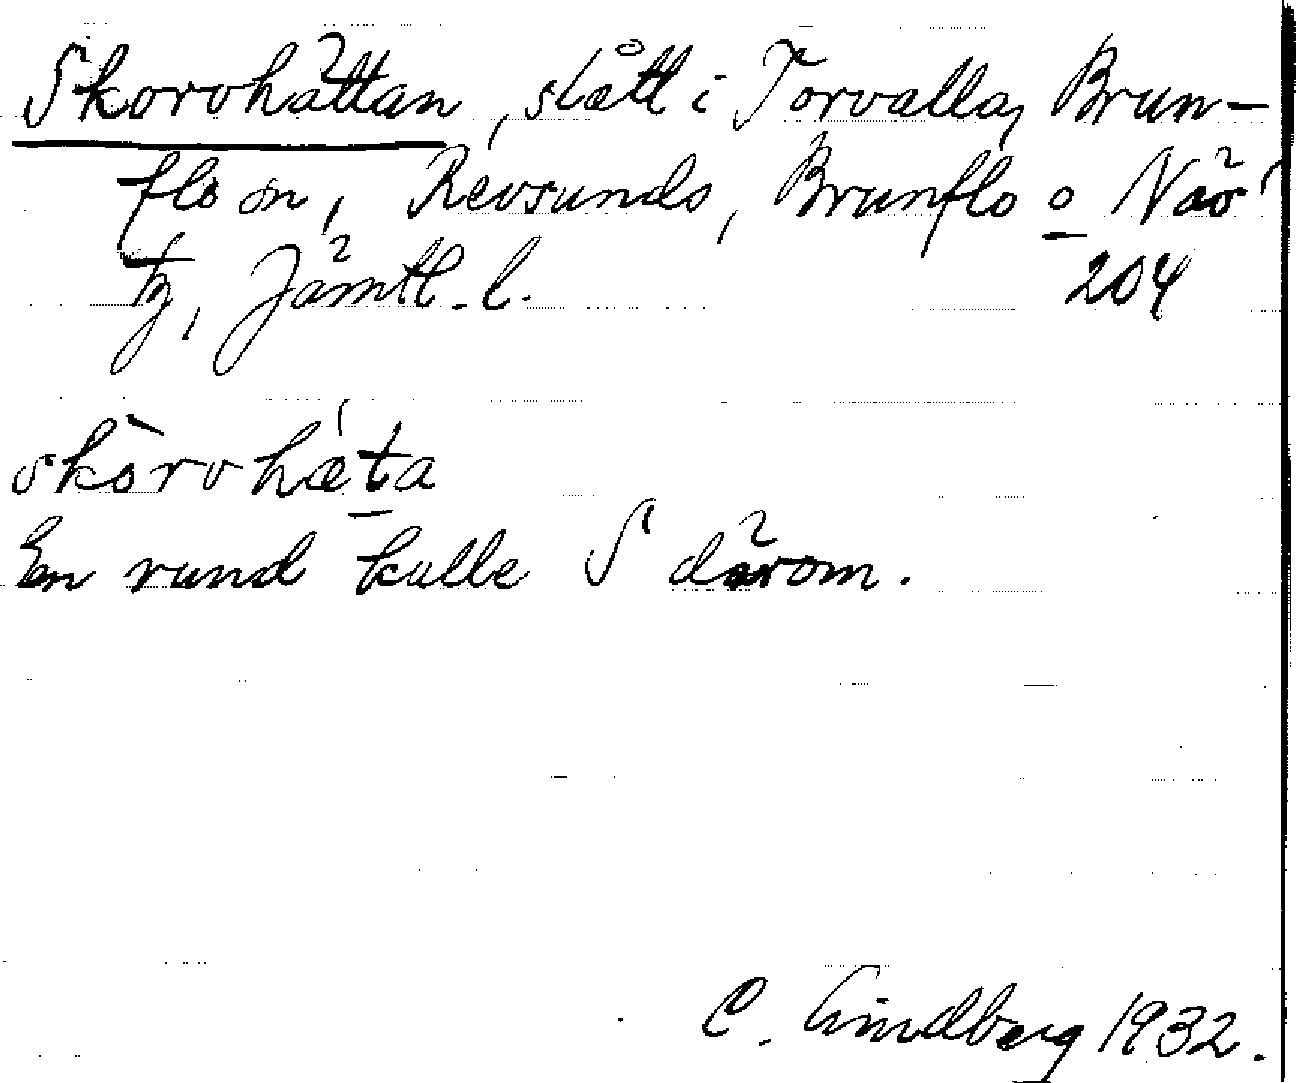 Skorvhättan, slått i Torvalla, Brun-
flo sn, Revsunds, Brunflo o Näs
tg, Jämtl. l. 204
skòrvhǽta
En rund kulle S därom.
C. Lindberg 1932.